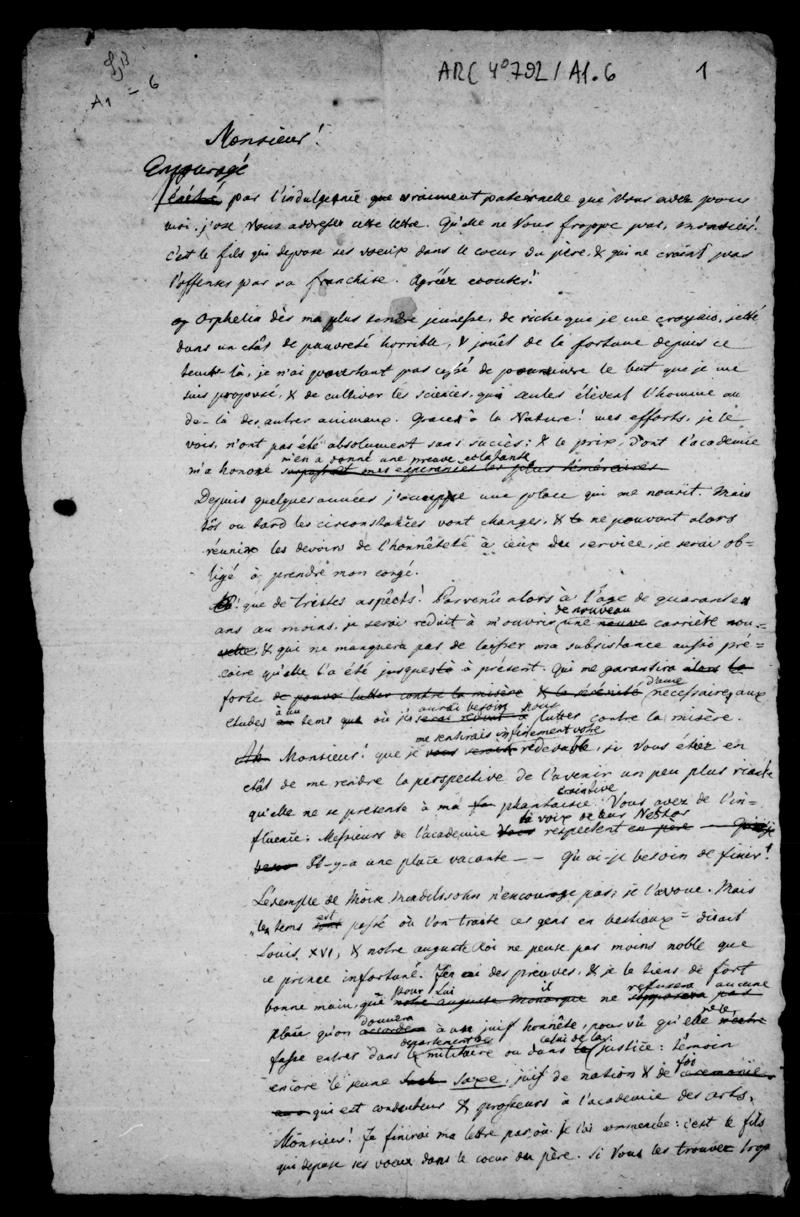 ARC 4° 792 / A1.6 1
A1 - 6
Monsieur!
Encouragé
Pénétré par l'indulgence que vraiment paternelle que Vous avez pour
moi, j'ose Vous addresser cette lettre. Qu'elle ne Vous frappe pas, monsieur!
c'est le fils qui depose ses voeux dans le coeur du père, & qui ne craint pas
l'offenser par sa franchise. Agréez
Orphelin dès ma plus tendre jeunesse, de riche que je me croyais, jetté
dans un etât de pauvreté horrible, & jouêt de la fortune depuis ce
tems-là, je n'ai pourtant pas cessé de poursuivre le but que je me
suis proposé, & de cultiver les sciences, qui seules élèvent l'homme au
de-là des autres animaux. Graces à la Nature! mes efforts, je le
vois, n'ont pas été absolument sans succès: & le prix, dont l'academie
m'en a donné une preuve eclatante
m'a honoré surpassait mes esperances les plus téméraires
Depuis quelques années j'occuppe une place qui me nourit. Mais
tôt ou tard les circonstances vont changer, & ne pouvant alors
réunir les devoirs de l'honnêteté à ceux du service, je serai ob=
ligé à prendre mon congé.
que de tristes aspêcts! Parvenu alors à l'age de quarante
de nouveau
ans au moins, je serai reduit à m'ouvrir une neuve carrière nou=
velle, & qui ne manquera pas de laisser ma subsistance aussi pré=
caire qu'elle l'a été jusques à présent. Qui me garantira alors la
d'ame
force de pouvoir lutter contre la misère & la sérénité necessaire, aux
à un aurai besoin pour
etudes en tems que où je serai reduit à lutter contre la misère.
me sentirais infiniment votre
Ah Monsieur! que je vous serais redevable, si Vous etiez en
etât de me rendre la perspective de l'avenir un peu plus riante
craintive
qu'elle ne se présente à ma phantaisie. Vous avez de l'in=
la voix de leur Nestor
fluence: Messieurs de l'academie Vous respectent en père
Il-y-a une place vacante - - Qu'ai-je besoin de finir!
L'exemple de Mendelssohn n'encourage pas, je l'avoue. Mais
est
„les tems sont passé où l'on traite ces gens en bestiaux = disait
Louis XVI, & notre auguste Roi ne pense pas moins noble que
ce prince infortuné. J'en ai des preuves, & je le tiens de fort
pour Lui il refusera aucune
bonne main, que notre auguste monarque ne opposera pas
donnera ne le
place qu'on accordera à un juif honnête, pourvû qu'elle
departement celui de la
fasse entrer dans le militaire ou dans la justice: témoin
foi
encore le jeune Saxe, juif de nation & de ceremonie
qui est conducteur & professeur à l'academie des arts.
Monsieur! Je finirai ma lettre par où je l'ai commencée: c'est le fils
qui depose ses voeux dans le coeur du père. Si Vous les trouvez trop